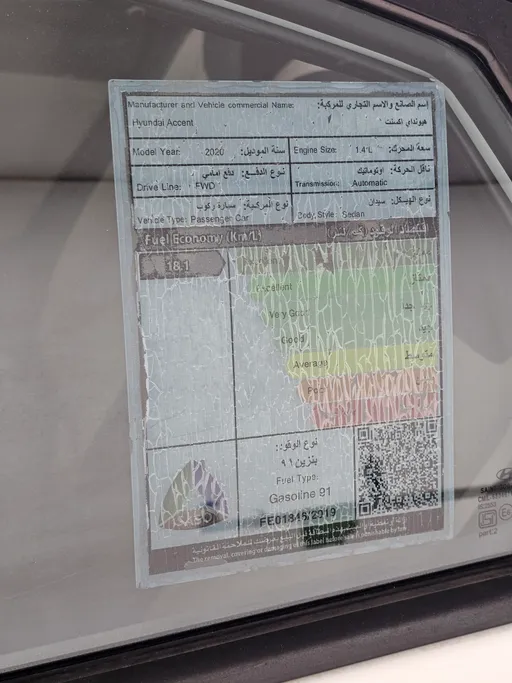 Manufacturer and Vehicle commercial Name: إسم الصانع والاسم التجاري للمركبة:
Hyundai Accent هيونداي اكسنت
Model Year: 2020 سنة الموديل: Engine Size: 1.4 L سعة المحرك:
نوع الدفع: دفع امامي ناقل الحركة: اوتوماتيك
Drive Line: FWD Transmission: Automatic
نوع المركبة: سيارة ركوب نوع الهيكل: سيدان
Vehicle Type: Passenger Car Body Style: Sedan
Fuel Economy (Km/L)
18.1
Excellent ممتاز
Very Good جيد جدا
Good جيد
Average متوسط
Poor
نوع الوقود:
بنزين ٩١
Fuel Type:
Gasoline 91
SASO FE01846/2019
The removal, covering or damaging of this label before sale is punishable by law
part2